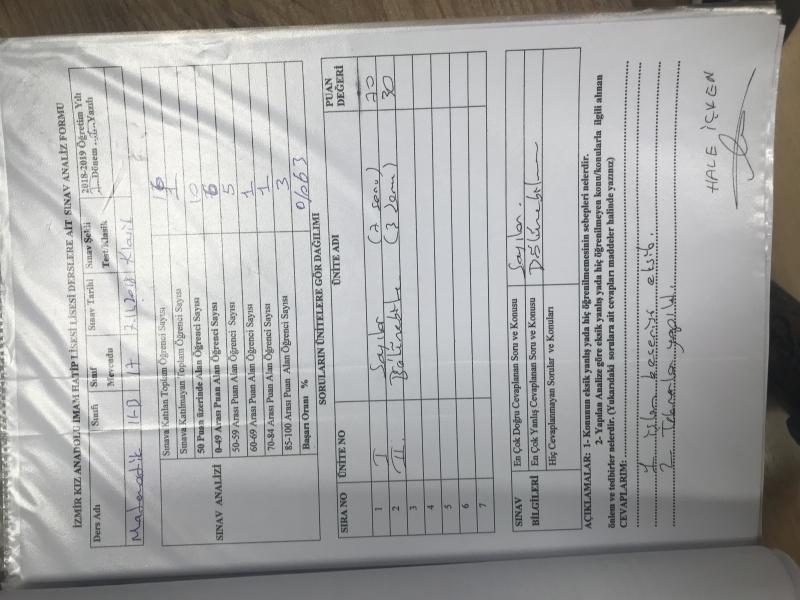 İZMİR KIZ ANADOLU İMAM HATİP LİSESİ LİSESİ DERSLERE AİT SINAV ANALİZ FORMU
Ders Adı Sınıfı Sınıf Mevcudu Sınav Tarihi Sınav Şekli Test/Klasik 2018-2019 Öğretim Yılı
Dönem Yazılı
Matematik 17 Klasik
SINAV ANALİZİ
Sınava Katılan Toplam Öğrenci Sayısı 16
Sınava Katılmayan Toplam Öğrenci Sayısı 1
50 Puan üzerinde Alan Öğrenci Sayısı 10
0-49 Arası Puan Alan Öğrenci Sayısı 6
50-59 Arası Puan Alan Öğrenci Sayısı 5
60-69 Arası Puan Alan Öğrenci Sayısı 1
70-84 Arası Puan Alan Öğrenci Sayısı 1
85-100 Arası Puan Alan Öğrenci Sayısı 3
Başarı Oranı % %63
SORULARIN ÜNİTELERE GÖR DAĞILIMI
SIRA NO ÜNİTE NO ÜNİTE ADI PUAN DEĞERİ
1 I Sayılar (7 soru) 70
2 II. (3 soru) 30
3
4
5
6
7
SINAV BİLGİLERİ
En Çok Doğru Cevaplanan Soru ve Konusu Sayılar.
En Çok Yanlış Cevaplanan Soru ve Konusu Bölünebilme
Hiç Cevaplanmayan Sorular ve Konuları
AÇIKLAMALAR: 1- Konunun eksik yanlış yada hiç öğrenilmemesinin sebepleri nelerdir.
2- Yapılan Analize göre eksik yanlış yada hiç öğrenilmeyen konu/konularla ilgili alınan
önlem ve tedbirler nelerdir. (Yukarıdaki sorulara ait cevapları maddeler halinde yazınız)
CEVAPLARIM:
1- İşlem becerisi eksik.
2- Tekrarlar yapıldı.
HALE İÇKEN